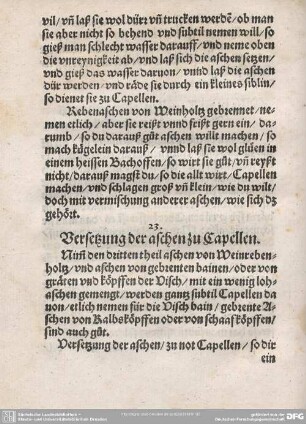 vil/ vñ laß sie wol dürr vñ trucken werdē/ ob man
sie aber nicht so behend vnd subtil nemen will/ so
gieß man schlecht wasser darauff/ vnd neme oben
die vnreynigkeit ab/ vnd laß sich die aschen setzen/
vnd gieß das wasser daruon/ vnnd laß die aschen
dür werden/ vnd räde sie durch ein kleines siblin/
so dienet sie zu Capellen.
Rebenaschen von Weinholtz gebrennet/ ne-
men etlich/ aber sie reißt vnnd frißt gern ein/ da-
rumb/ so du darauß gůt aschen wilt machen/ so
mach kůgelein darauß/ vnnd laß sie wol glüen in
einem heissen Bachoffen/ so wirt sie gůt/ vñ reyßt
nicht/ darauß magst du/ so die allt wirt/ Capellen
machen/ vnd schlagen groß vñ klein/ wie du wilt/
doch mit vermischung anderer aschen/ wie sich dz
gehört.
23.
Versetzung der aschen zu Capellen.
Nim̃ den dritten theil aschen von Weinreben-
holtz/ vnd aschen von gebrenten bainen/ oder von
gräten vnd köpffen der Visch/ mit ein wenig loh-
aschen gemengt/ werden gantz subtil Capellen da
uon/ etlich nemen für die Visch bain/ gebrente A-
schen von Kalbsköpffen oder von schaafköpffen/
sind auch gůt.
Versetzung der aschen/ zu not Capellen/ so dir
ein